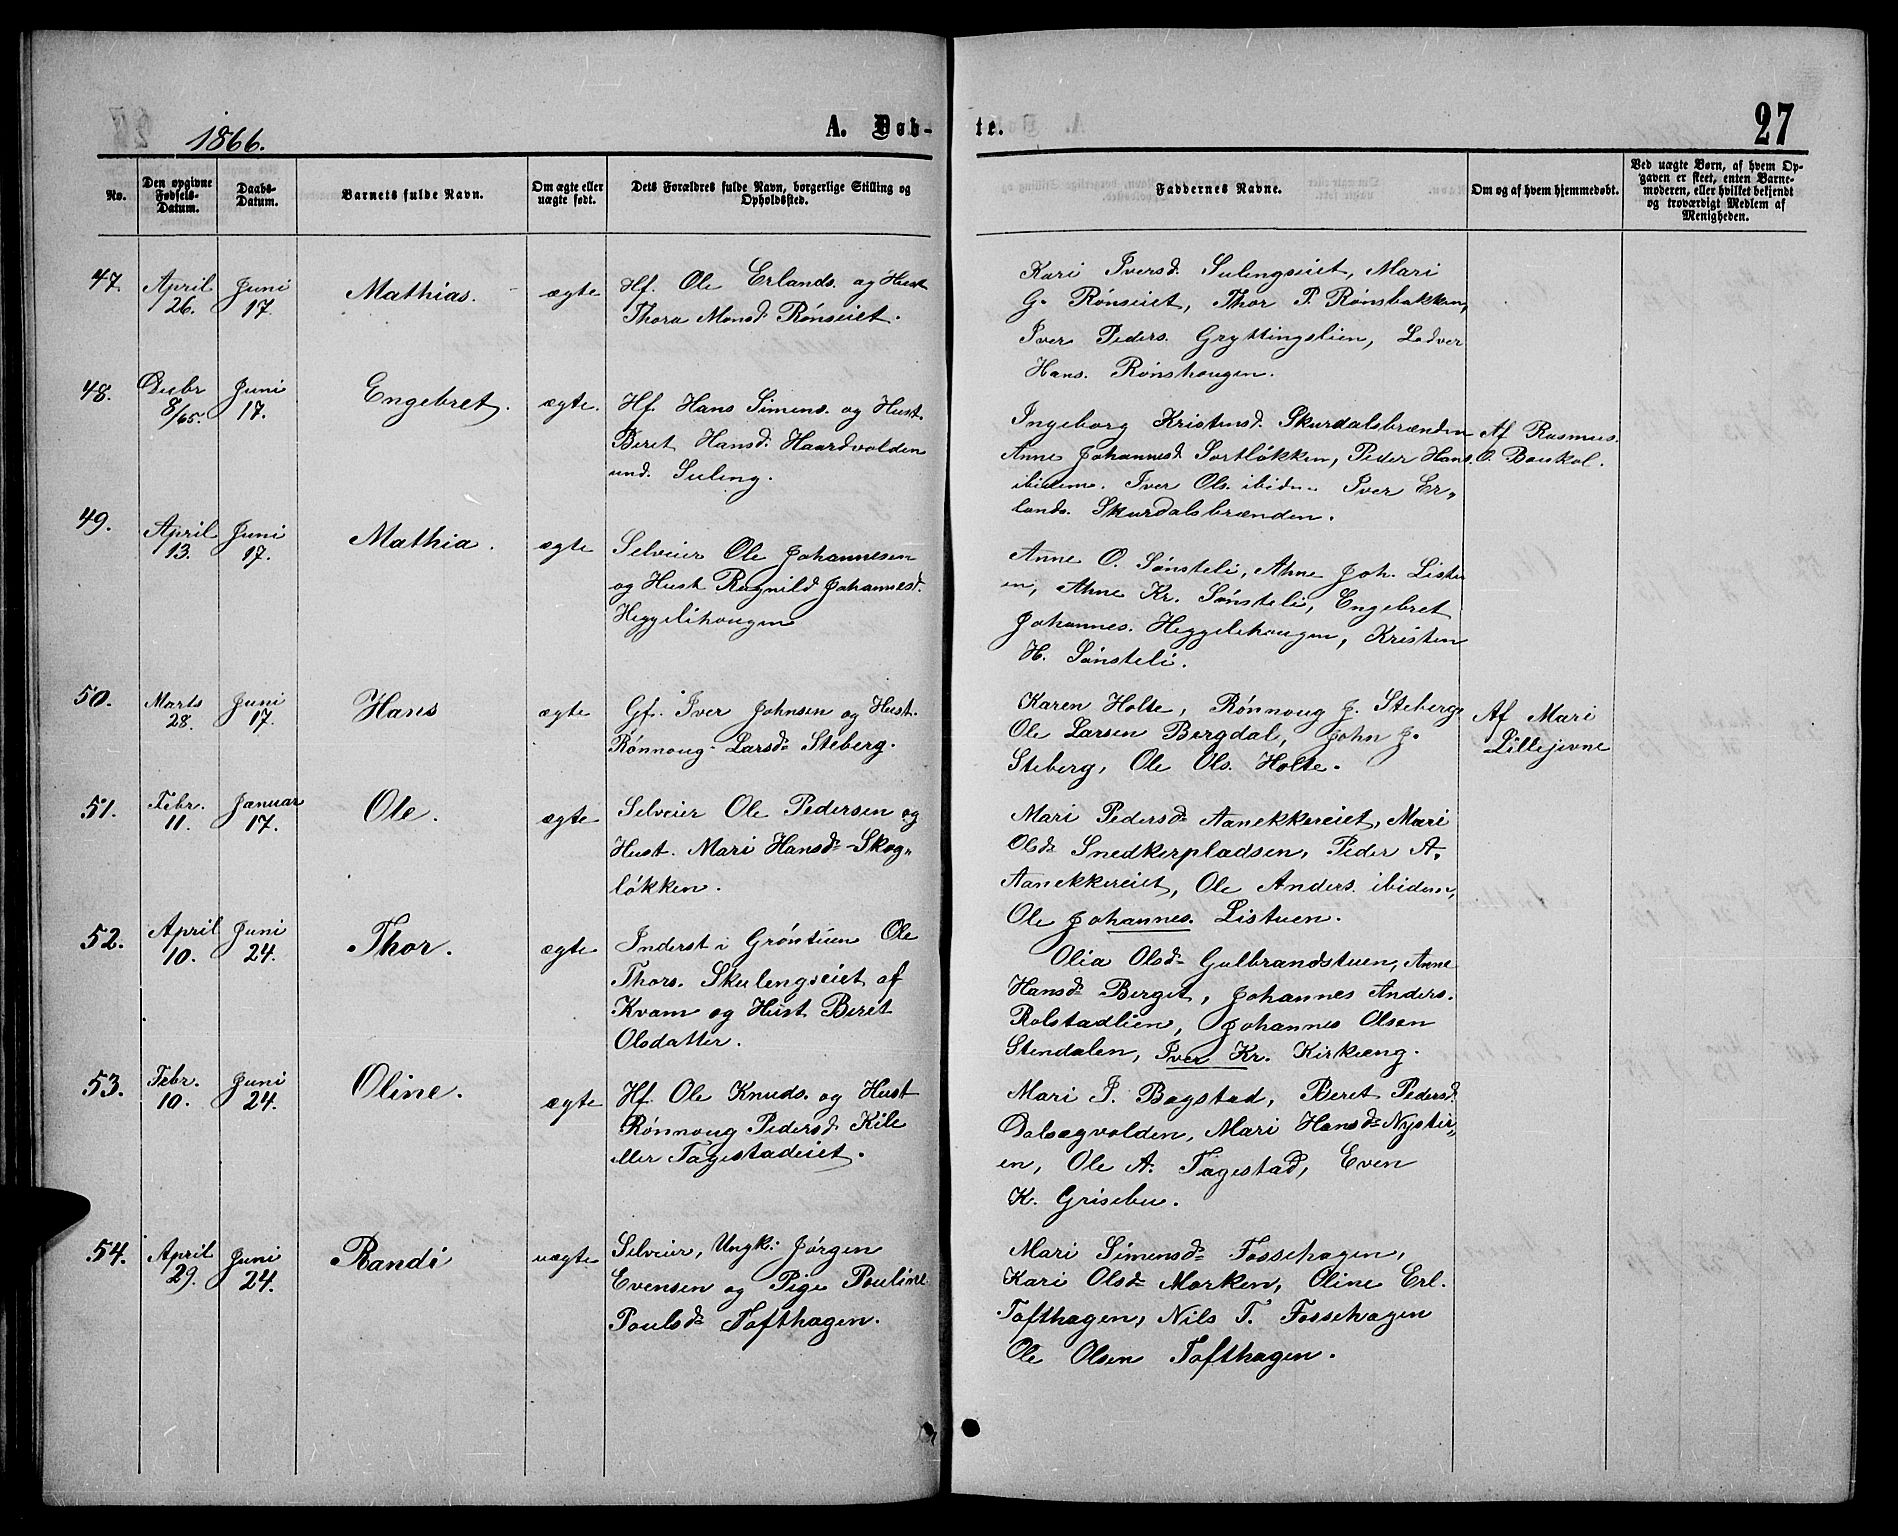 1866.
A. Døb-
te.
27
No.
Den opgivne
Fødsels-
Datum.
Daabs-
Datum.
Barnets fulde Navn.
Om ægte eller
uægte født.
Dets Forældres fulde Navn, borgerlige Stilling og
Opholdssted.
Faddernes Navne.
Om og af hvem hjemmedøbt.
Ved uægte Børn, af hvem Op-
gaven er skeet, enten Barne-
moderen, eller hvilket bekjendt
og troværdigt Medlem af
Menigheden.
47.
April
26.
Juni
17.
Mathias.
ægte
Hf. Ole Erlands. og Hust
Thora Monsd. Rønseiet.
Kari Iversd. Sulengseiet, Mari
G. Rønseiet, Thor P. Rønsbakken,
Iver Peders. Gryttingslien, Ledver
Hans. Rønshougen.
48.
Decbr
8/65.
Juni
17.
Engebret.
ægte.
Hf. Hans Simens. og Hust.
Beret Hansd. Haardvolden
und. Suleng.
Ingeborg Kristensd. Skurdalsbrænden
Anne Johannesd. Sortløkken, Peder Hans.
ibidem. Iver Ols. ibidem Iver Er-
lands. Skurdalsbrænden.
Af Rasmus
O. Boukol.
49.
April
13.
Juni
17.
Mathia.
ægte
Selveier Ole Johannesen
og Hust Ragnild Johannesd.
Heggelihougen
Anne O. Sønsteli, Anne Joh. Listu
en, Anne Kr. Sønsteli, Engebret
Johannes. Heggelihougen, Kristen
H. Sønsteli.
50.
Marts
28.
Juni
17.
Hans
ægte
Gf. Iver Johnsen og Hust.
Rønnoug Larsd. Steberg.
Karen Holte, Rønnoug J. Steberg,
Ole Larsen Bergdal, John J.
Steberg, Ole Ols. Holte.
Af Mari
Lillejevne
51.
Febr.
11.
Januar
17.
Ole.
ægte
Selveier Ole Pedersen og
Hust. Mari Hansd. Skog-
løkken.
Mari Pedersd. Aanekkereiet, Mari
Olsd. Snedkerpladsen, Peder A.
Aanekkereiet, Ole Anders. ibidem,
Ole Johannes. Listuen.
52.
April
10.
Juni
24.
Thor.
ægte
Inderst i Grøntuen Ole
Thors. Skulengseiet af
Kvam og Hust Beret
Olsdatter.
Olia Olsd. Gulbrandstuen, Anne
Hansd. Berget, Johannes Anders.
Rolstadlien, Johannes Olsen
Stendalen, Iver Kr. Kirkeeng.
53.
Febr.
10.
Juni
24.
Oline.
ægte
Hf. Ole Knuds. og Hust
Rønnoug Pedersd. Kile
eller Tagestadeiet.
Mari P. Bagstad, Beret Pedersd.
Dalsegvolden, Mari Hansd. Nystu-
en, Ole A. Tagestad, Even
K. Grisebu.
54.
April
29.
Juni
24.
Randi
uægte
Selveier, Ungk: Jørgen
Evensen og Pige Pouline
Poulsd. Tofthagen.
Mari Simensd. Fossehagen,
Kari Olsd. Morken, Oline Erl.
Tofthagen, Nils T. Fossehagen
Ole Olsen Tofthagen.